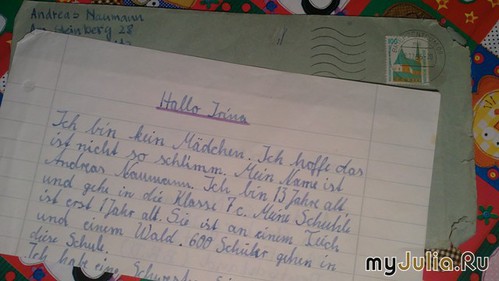 Andreas Naumann
Am Steinberg 28
Hallo Irina
Ich bin kein Mädchen. Ich hoffe das
ist nicht so schlimm. Mein Name ist
Andreas Naumann. Ich bin 13 Jahre alt
und gehe in die Klasse 7c. Meine Schuhle
ist erst 1 Jahr alt. Sie ist an einem Teich
und einem Wald. 600 Schüler gehen in
diese Schule.
Ich habe eine Schwester
myJulia.Ru